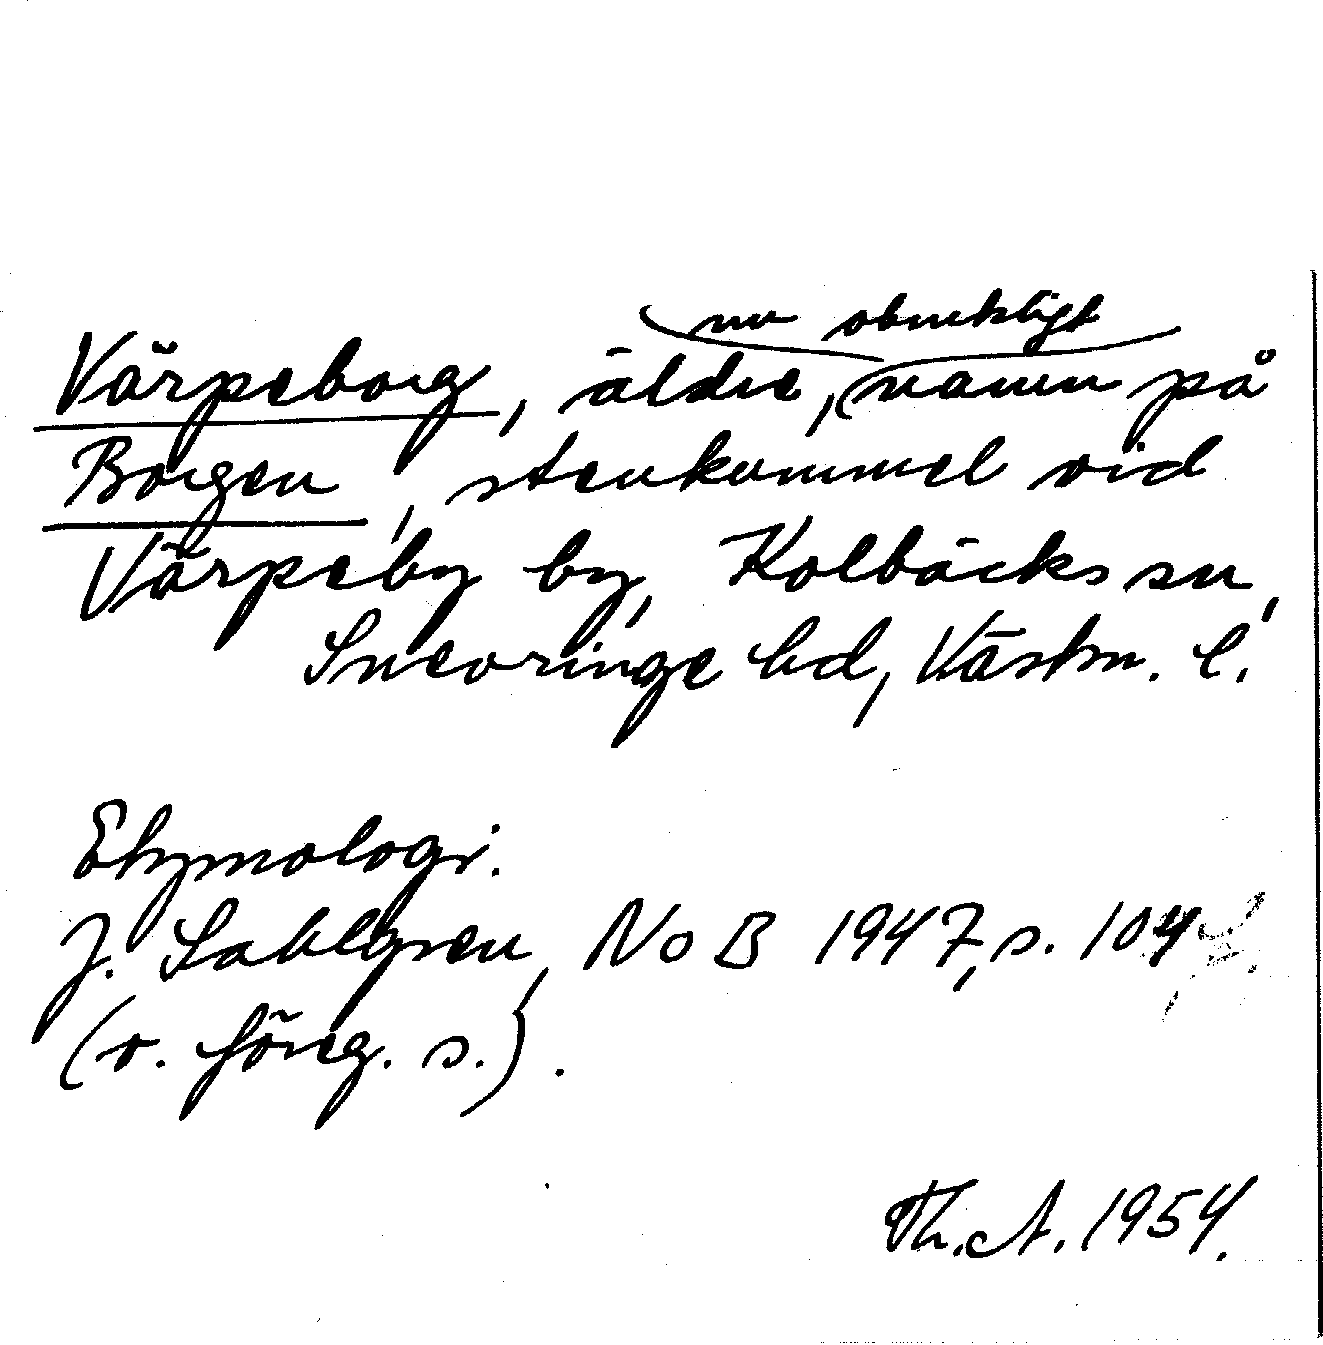 nu obrukligt
Värpeborg, äldre, namn på
Borgen, stenkummel vid
Värpeby by, Kolbäcks sn,
Snevringe hd, Västm. l.
Etymologi.
J. Sahlgren, NoB 1947, s. 104
(o. föreg. s.).
Th. A. 1954.